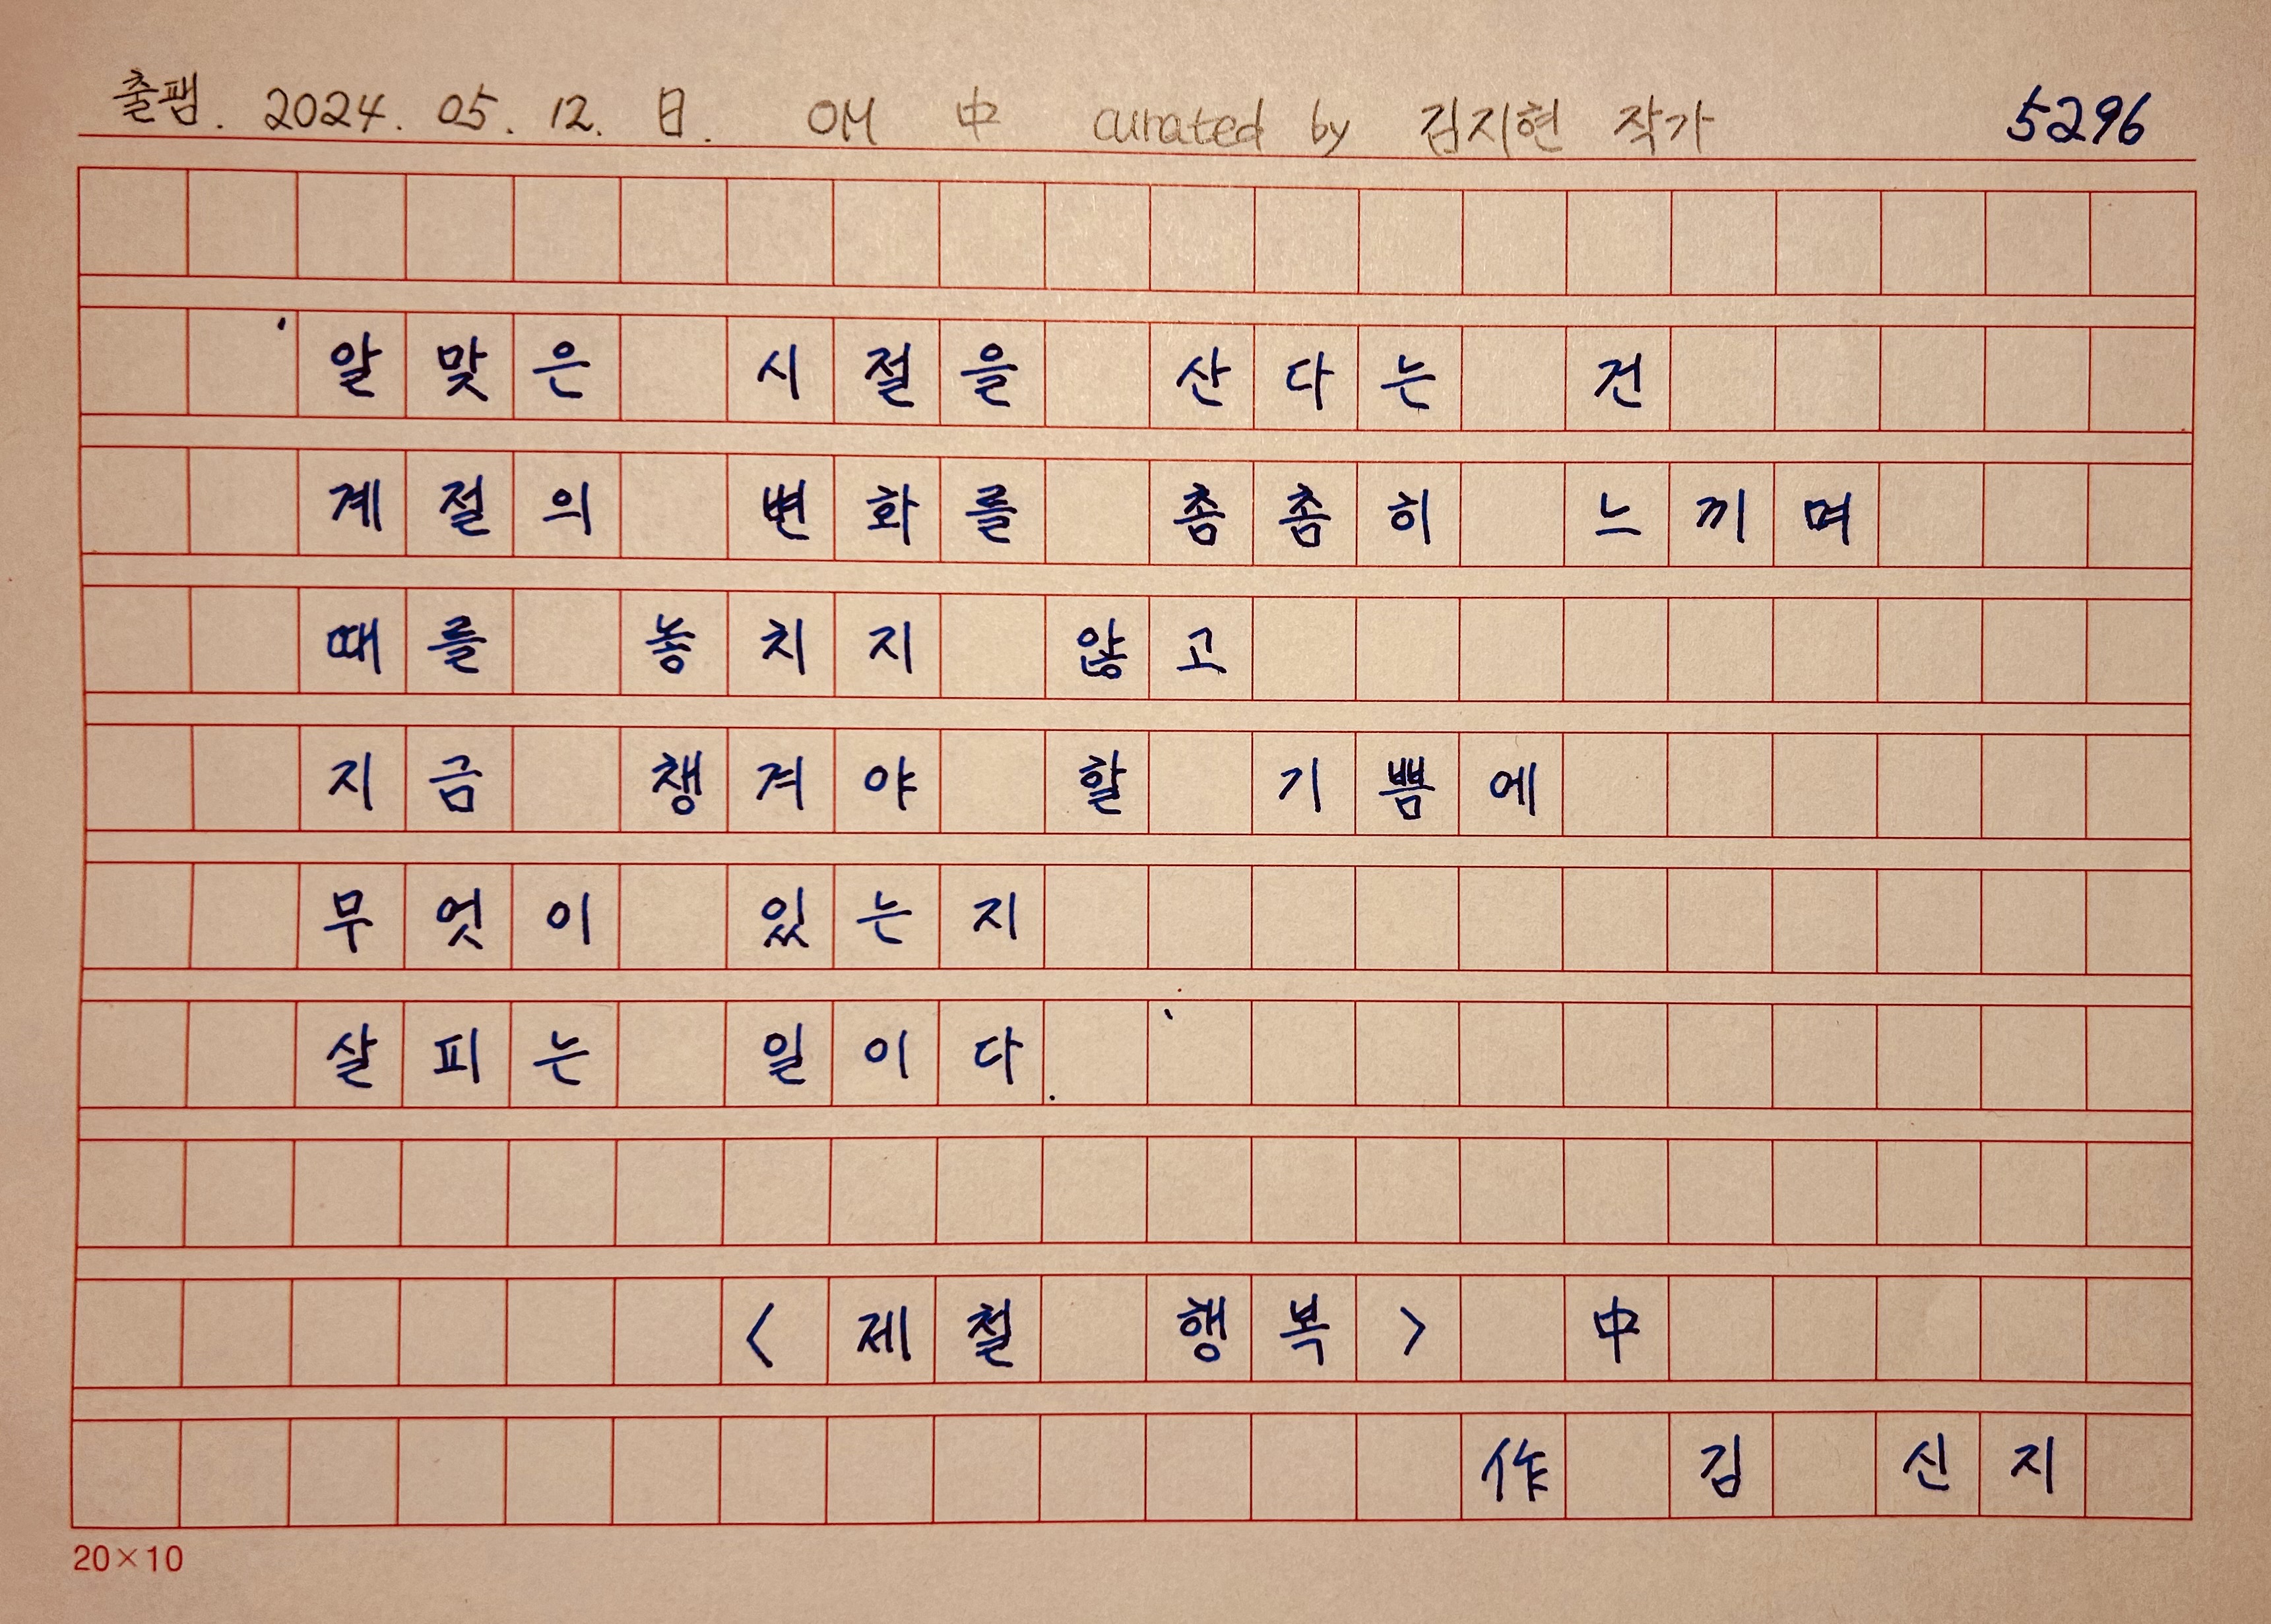 출팸. 2024. 05. 12. 日. OM 中 curated by 김지현 작가 5296
'알맞은 시절을 산다는 건
계절의 변화를 촘촘히 느끼며
때를 놓치지 않고
지금 챙겨야 할 기쁨에
무엇이 있는지
살피는 일이다.'
<제철 행복> 中
作 김 신지
20×10